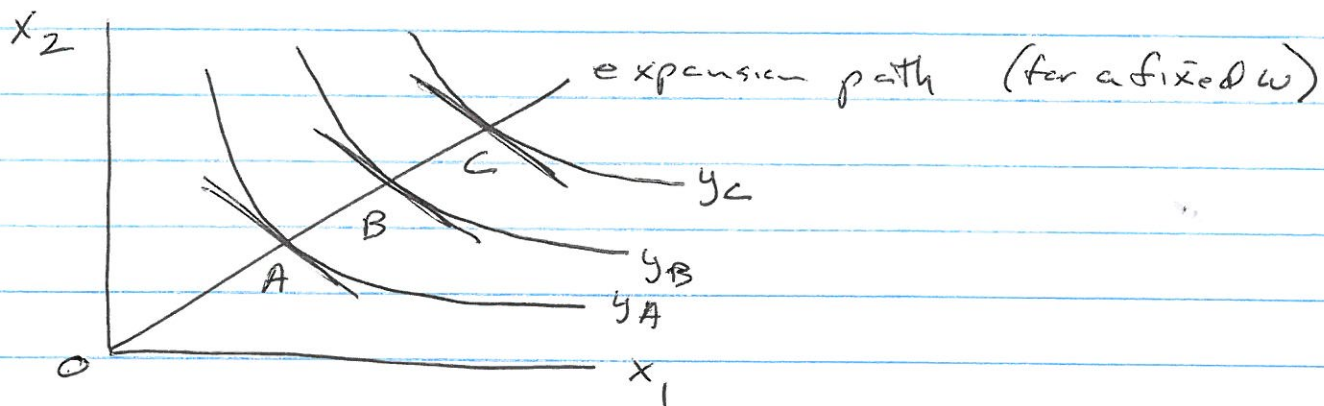 x2
expansion path (for a fixed w)
C
yC
B
yB
A
yA
0
x1